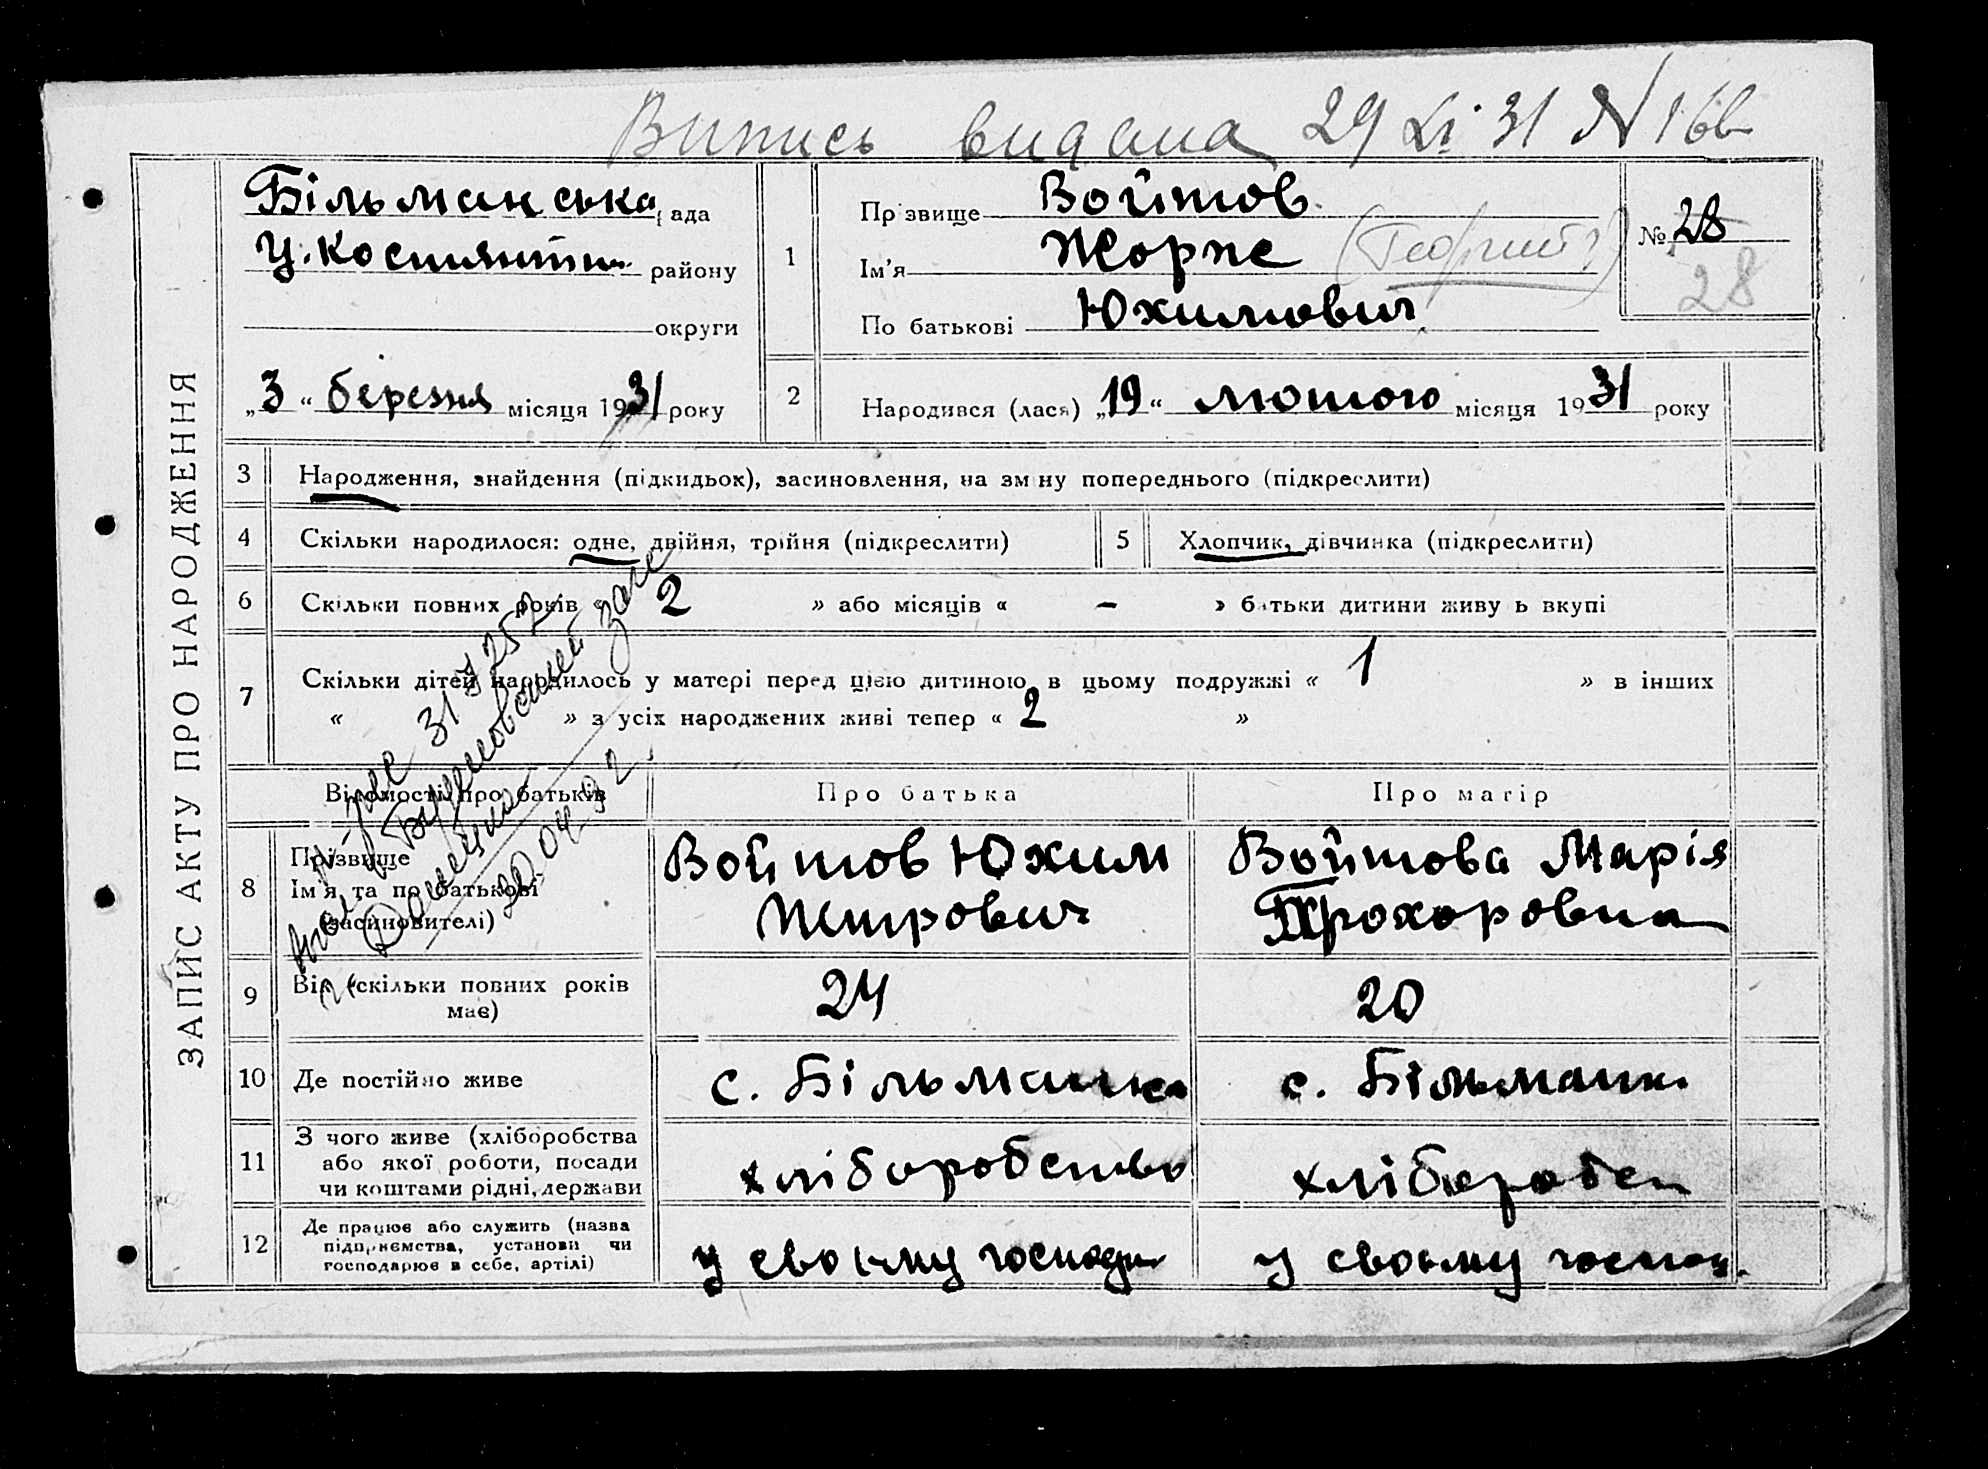 Випись видана 29 XI 31 N 166
ЗАПИС АКТУ ПРО НАРОДЖЕННЯ
Більманська рада
району
округи
„3“ березня місяця 1931 року
1
Прізвище Войтов
Ім'я Жорже (Георгий)
По батькові Юхимович
№ 28
28
2
Народився (лася) „19“ лютого місяця 1931 року
3 Народження, знайдення (підкидьок), засиновлення, на зміну попереднього (підкреслити)
4 Скільки народилося: одне, двійня, трійня (підкреслити) 5 Хлопчик, дівчинка (підкреслити)
6 Скільки повних років 2 » або місяців « – » батьки дитини живуть вкупі
7 Скільки дітей народилось у матері перед цією дитиною в цьому подружжі « 1 » в інших
« » з усіх народжених живі тепер « 2 »
Відомості про батьків Про батька Про матір
8 Прізвище
Ім'я та по батькові
(засиновителі)
Войтов Юхим
Петрович
Войтова Марія
Прохоровна
9 Вік (скільки повних років
має) 24 20
10 Де постійно живе с. Більманка с. Більманк.
11 З чого живе (хліборобства
або якої роботи, посади
чи коштами рідні, держави
хліборобство хлібороб
12 Де працює або служить (назва
підприємства, установи чи
господарює в себе, артілі)
у своєму господ у своєму господ.
31 7257
Буденовский загс
20.04.92